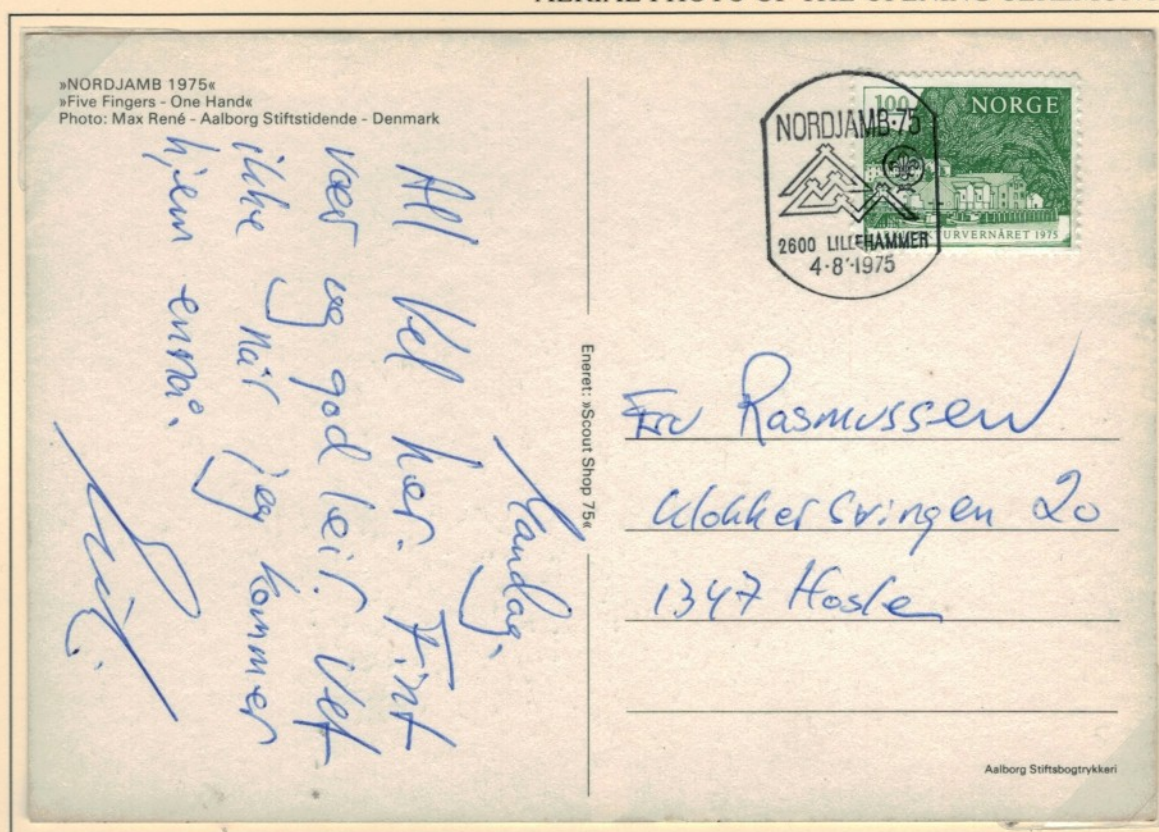 »NORDJAMB 1975«
»Five Fingers - One Hand«
Photo: Max René - Aalborg Stiftstidende - Denmark
Mandag.
All vel her. Fint
vær og god leir. Vet
ikke når jeg kommer
hjem ennå.
Eneret: »Scout Shop 75«
100
NORGE
NORDJAMB·75
2600 LILLEHAMMER
4·8·1975
Fru Rasmussen
Klokkersvingen 20
1347 Hosle
Aalborg Stiftsbogtrykkeri